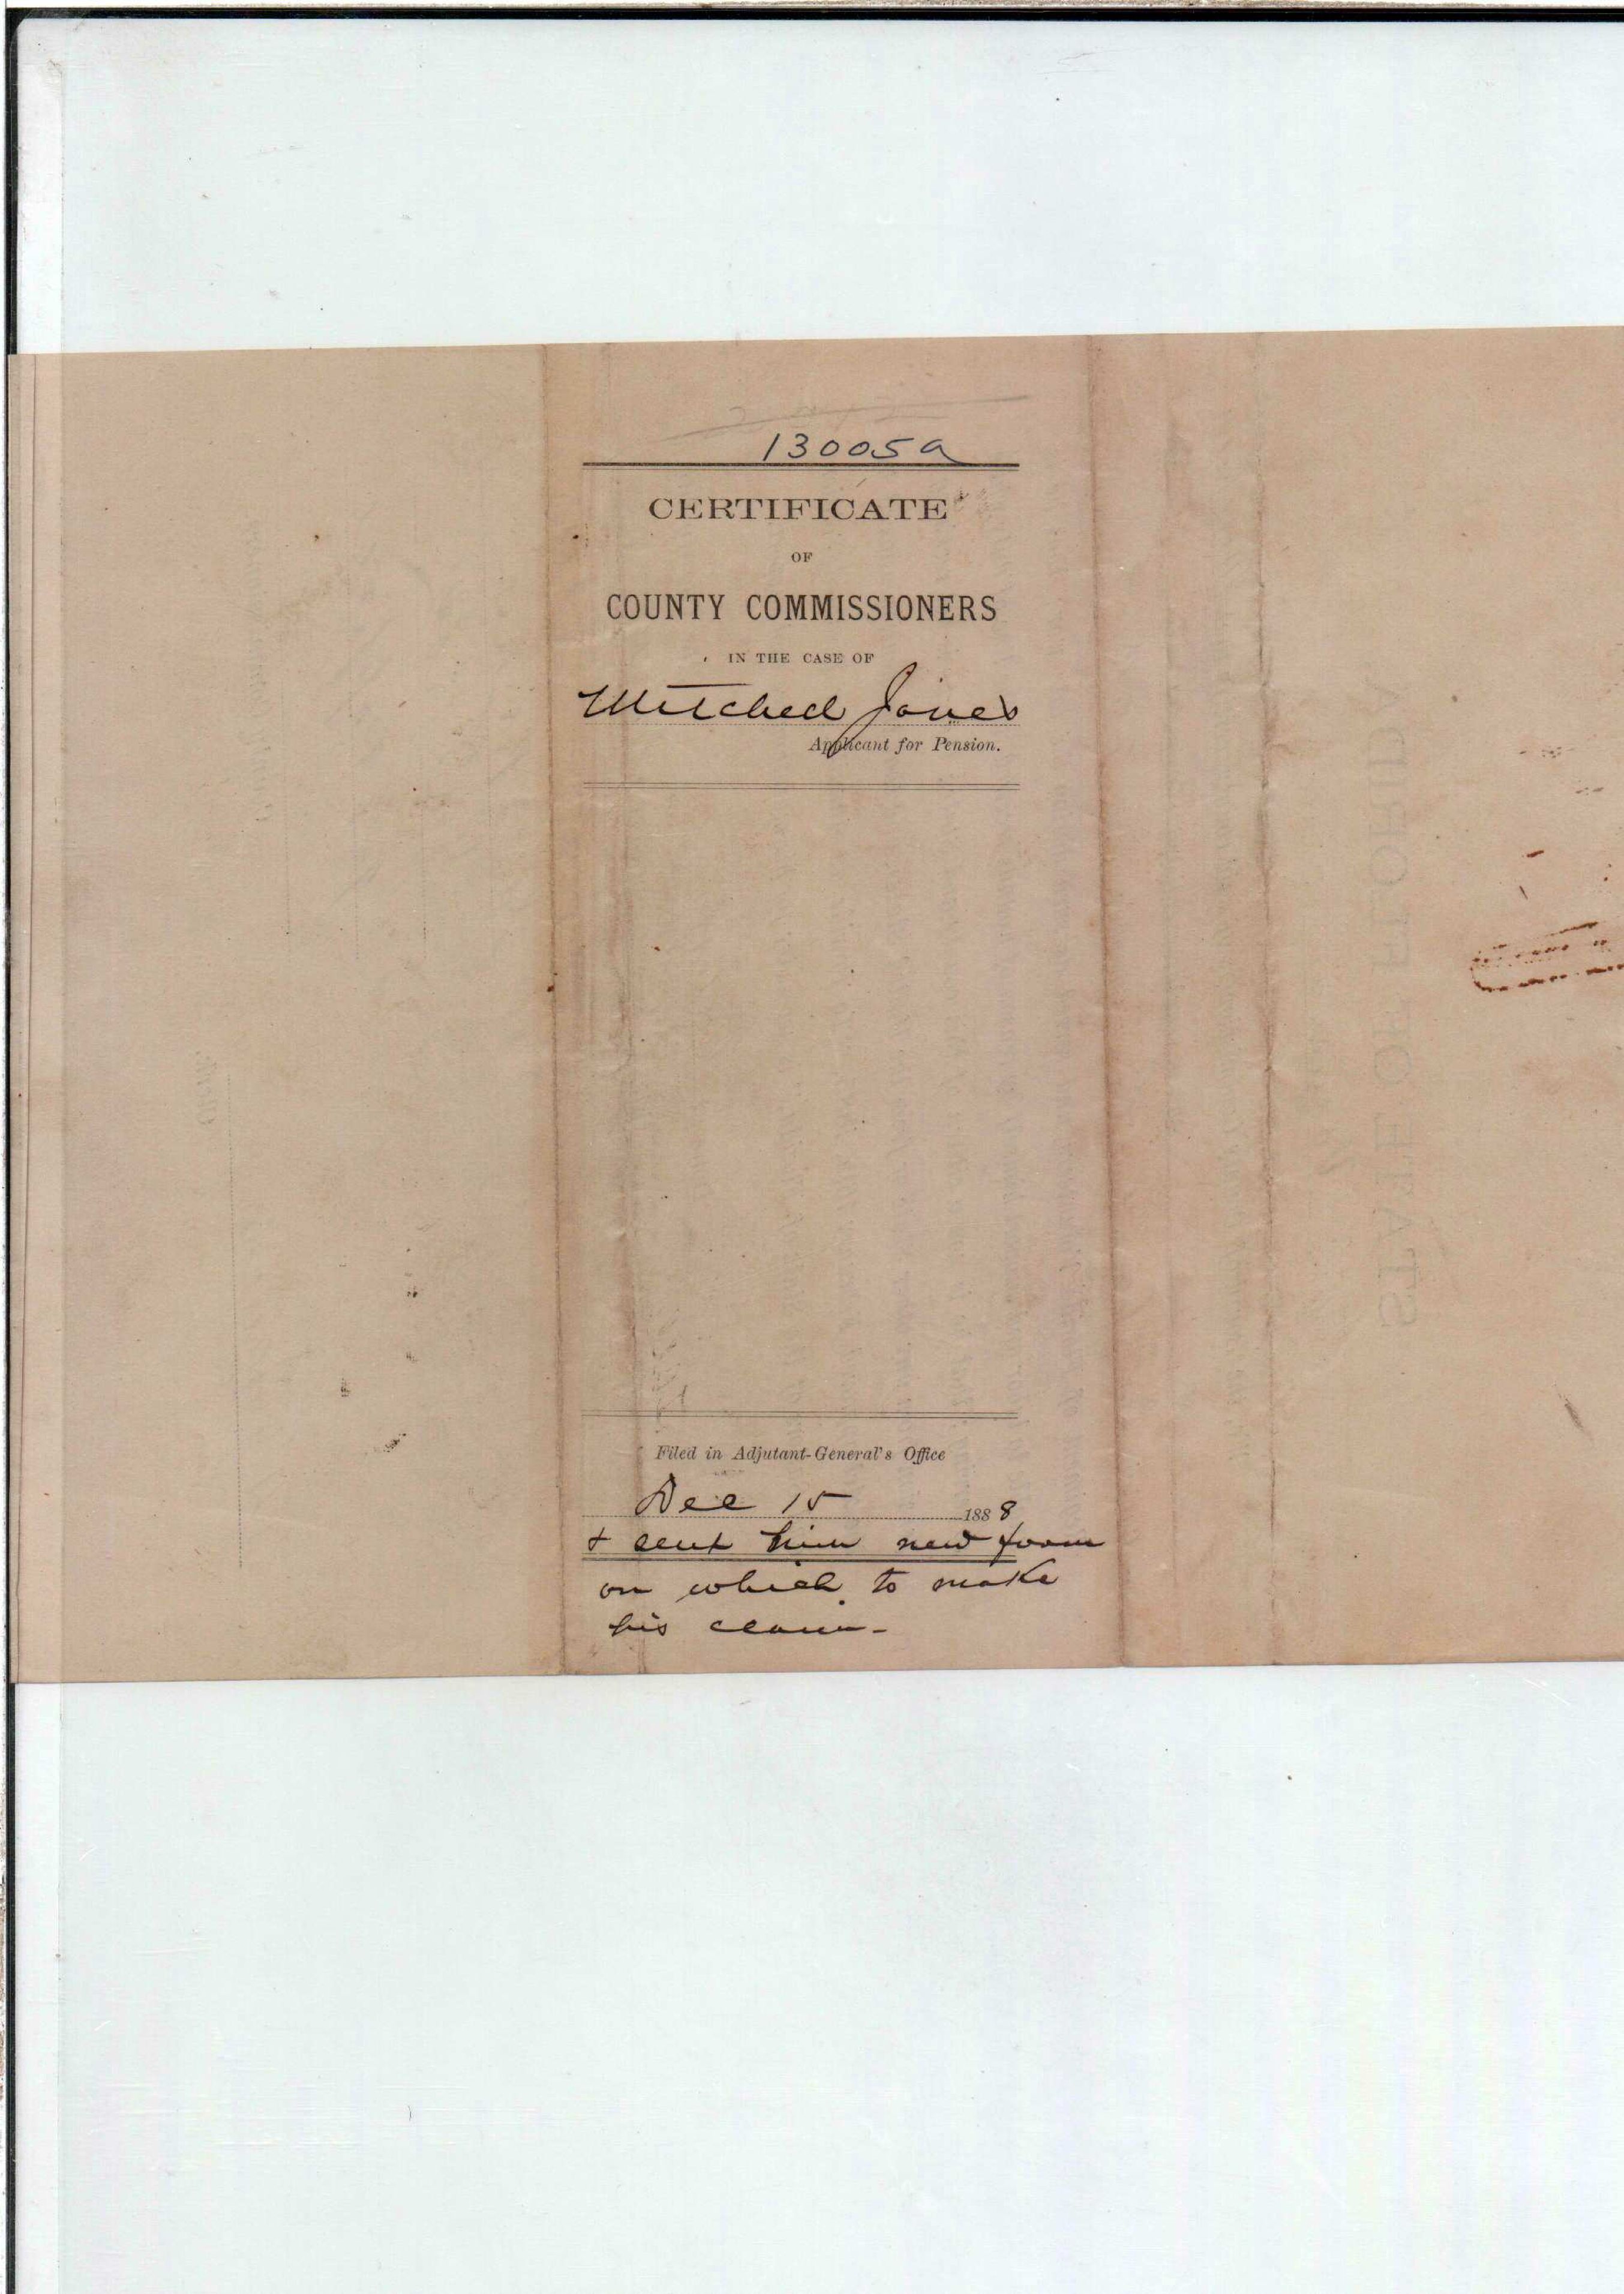 13005a
CERTIFICATE
OF
COUNTY COMMISSIONERS
IN THE CASE OF
Mitchell Jones
Applicant for Pension.
Filed in Adjutant-General's Office
Dec 15 1888
& sent him new form
on which to make
his claim-